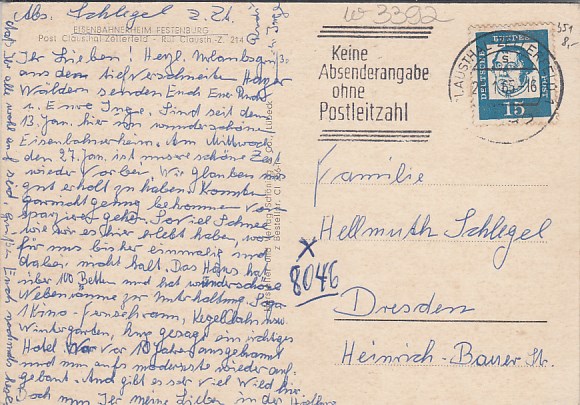 Abs. Schlegel z. Zt.
EISENBAHNERHEIM FESTENBURG
Post Clausthal-Zellerfeld - Ruf Clausth.-Z. 214
Ihr Lieben! Herzl. Urlaubsgr.
aus dem tiefverschneiten Harzer
Wäldern senden Euch Eure
u. Eure Inge. Sind seit dem
13. Jan. hier im wunderschönen
Eisenbahnerheim. Am Mittwoch
den 27. Jan. ist unsere schöne Zeit
wieder vorbei. Wir glauben uns
gut erholt zu haben. Konnten
garnicht genug bekommen vom
spazieren gehen. Soviel Schnee
wie wir es hier erlebt haben, war
für uns bisher einmalig und
dabei nicht kalt. Das Haus hat
über 100 Betten und hat wunderschöne
Nebenräume zur Unterhaltung. Sogar
1 Kino - Fernsehraum, Kegelbahn usw.
Wintergarten, kurz gesagt ein richtiges
Hotel. War vor 10 Jahren ausgebrannt
und nun aufs modernste wieder auf-
gebaut. Und gibt es sehr viel Wild hier.
Doch nun Ihr meine Lieben in der
w 3392
Keine
Absenderangabe
ohne
Postleitzahl
DEUTSCHE BUNDESPOST
15
351
8,-
Familie
Hellmuth Schlegel
x
8046
Dresden
Heinrich-Bauer Str.